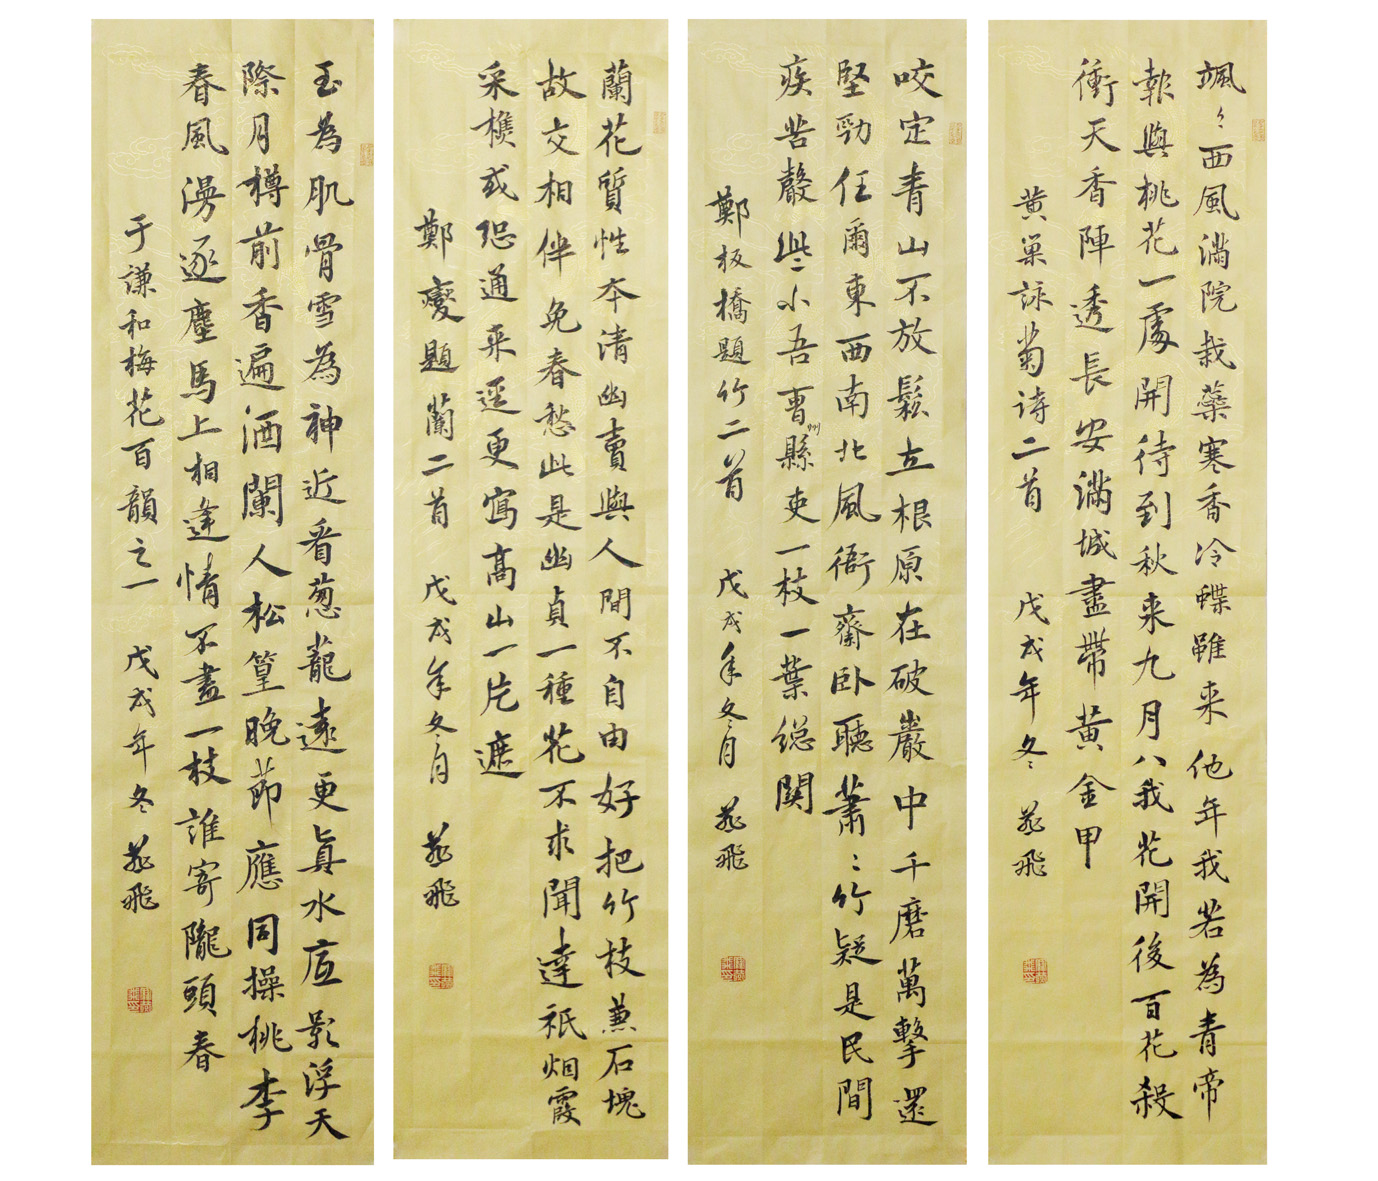 玉為肌骨雪為神近看葱蘢遠更真水底影浮天
際月樽前香遍酒闌人松篁晚節應同操桃李
春風漫逐塵馬上相逢情不盡一枝誰寄隴頭春
于謙和梅花百韻之一 戊戌年冬 飛
蘭花質性本清幽賣與人間不自由好把竹枝兼石塊
故交相伴免春愁此是幽貞一種花不求聞達祇烟霞
采樵或恐通来逕更寫高山一片遮
鄭燮題蘭二首 戊戌年冬月 飛
咬定青山不放鬆立根原在破巖中千磨萬擊還
堅勁任爾東西南北風衙齋卧聽蕭〻竹疑是民間
疾苦聲些小吾曹州縣吏一枝一葉總関
鄭板橋題竹二首 戊戌年冬月 飛
颯〻西風滿院栽蘂寒香冷蝶雖来他年我若為青帝
報與桃花一處開待到秋来九月八我花開後百花殺
衝天香陣透長安滿城盡帶黄金甲
黄巢詠菊诗二首 戊戌年冬 飛